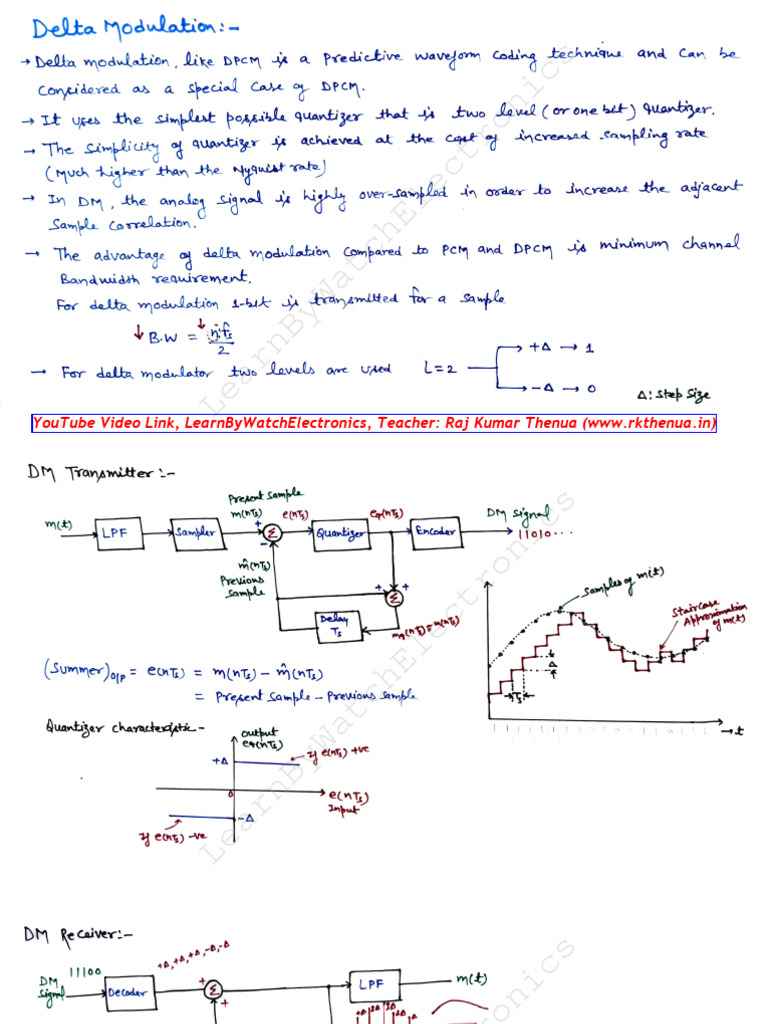 Delta Modulation:-
→ Delta modulation, like DPCM is a predictive waveform coding technique and can be
considered as a special case of DPCM.
→ It uses the simplest possible quantizer that is two level (or one bit) quantizer.
→ The simplicity of quantizer is achieved at the cost of increased sampling rate
(Much higher than the Nyquist rate)
→ In DM, the analog signal is highly over-sampled in order to increase the adjacent
sample correlation.
→ The advantage of delta modulation compared to PCM and DPCM is minimum channel
Bandwidth requirement.
For delta modulation 1-bit is transmitted for a sample
↓ B.W = ↓ nfs
2
→ For delta modulator two levels are used L=2
+Δ → 1
-Δ → 0
Δ: Step Size
YouTube Video Link, LearnByWatchElectronics, Teacher: Raj Kumar Thenua (www.rkthenua.in)
DM Transmitter:-
m(t)
LPF
Sampler
Present sample
m(nTs)
+
-
Σ
e(nTs)
Quantizer
eq(nTs)
Encoder
DM signal
11010...
m̂(nTs)
Previous
sample
+
+
Σ
Delay
Ts
mq(nTs)=m(nTs)
Samples of m(t)
Staircase
Approximation
of m(t)
Δ
Ts
→t
(Summer)o/p = e(nTs) = m(nTs) - m̂(nTs)
= Present sample - Previous sample
Quantizer characteristic-
output
eq(nTs)
+Δ
If e(nTs) +ve
0
e(nTs)
Input
-Δ
If e(nTs) -ve
DM Receiver:-
11100
DM
Signal
Decoder
+Δ,+Δ,+Δ,-Δ,-Δ
+
Σ
+
LPF
m(t)
LearnByWatchElectronics
LearnByWatchElectronics